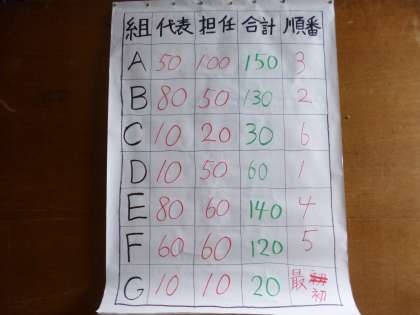 組 代表 担任 合計 順番
A 50 100 150 3
B 80 50 130 2
C 10 20 30 6
D 10 50 60 1
E 80 60 140 4
F 60 60 120 5
G 10 10 20 最初